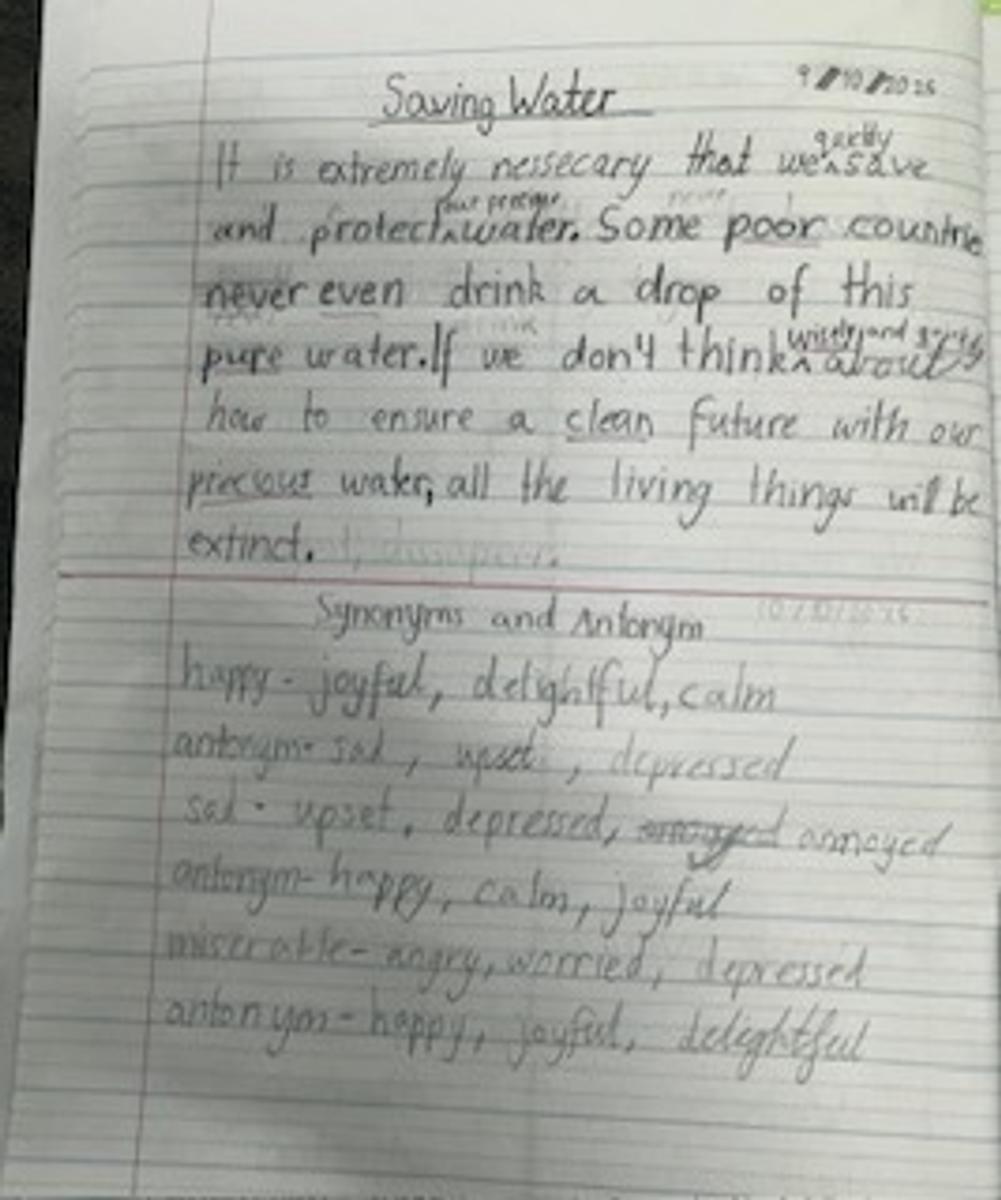 Saving Water 9/10/2025
It is extremely nessecary that we quickly save
and protect our precious water. Some poor countrie
never even drink a drop of this
pure water. If we don't think wisely and about
how to ensure a clean future with our
precious water, all the living things will be
extinct.
Synonyms and Antonym
happy - joyful, delightful, calm
antonym - sad, upset, depressed
sad - upset, depressed, annoyed
antonym - happy, calm, joyful
miserable - angry, worried, depressed
antonym - happy, joyful, delightful